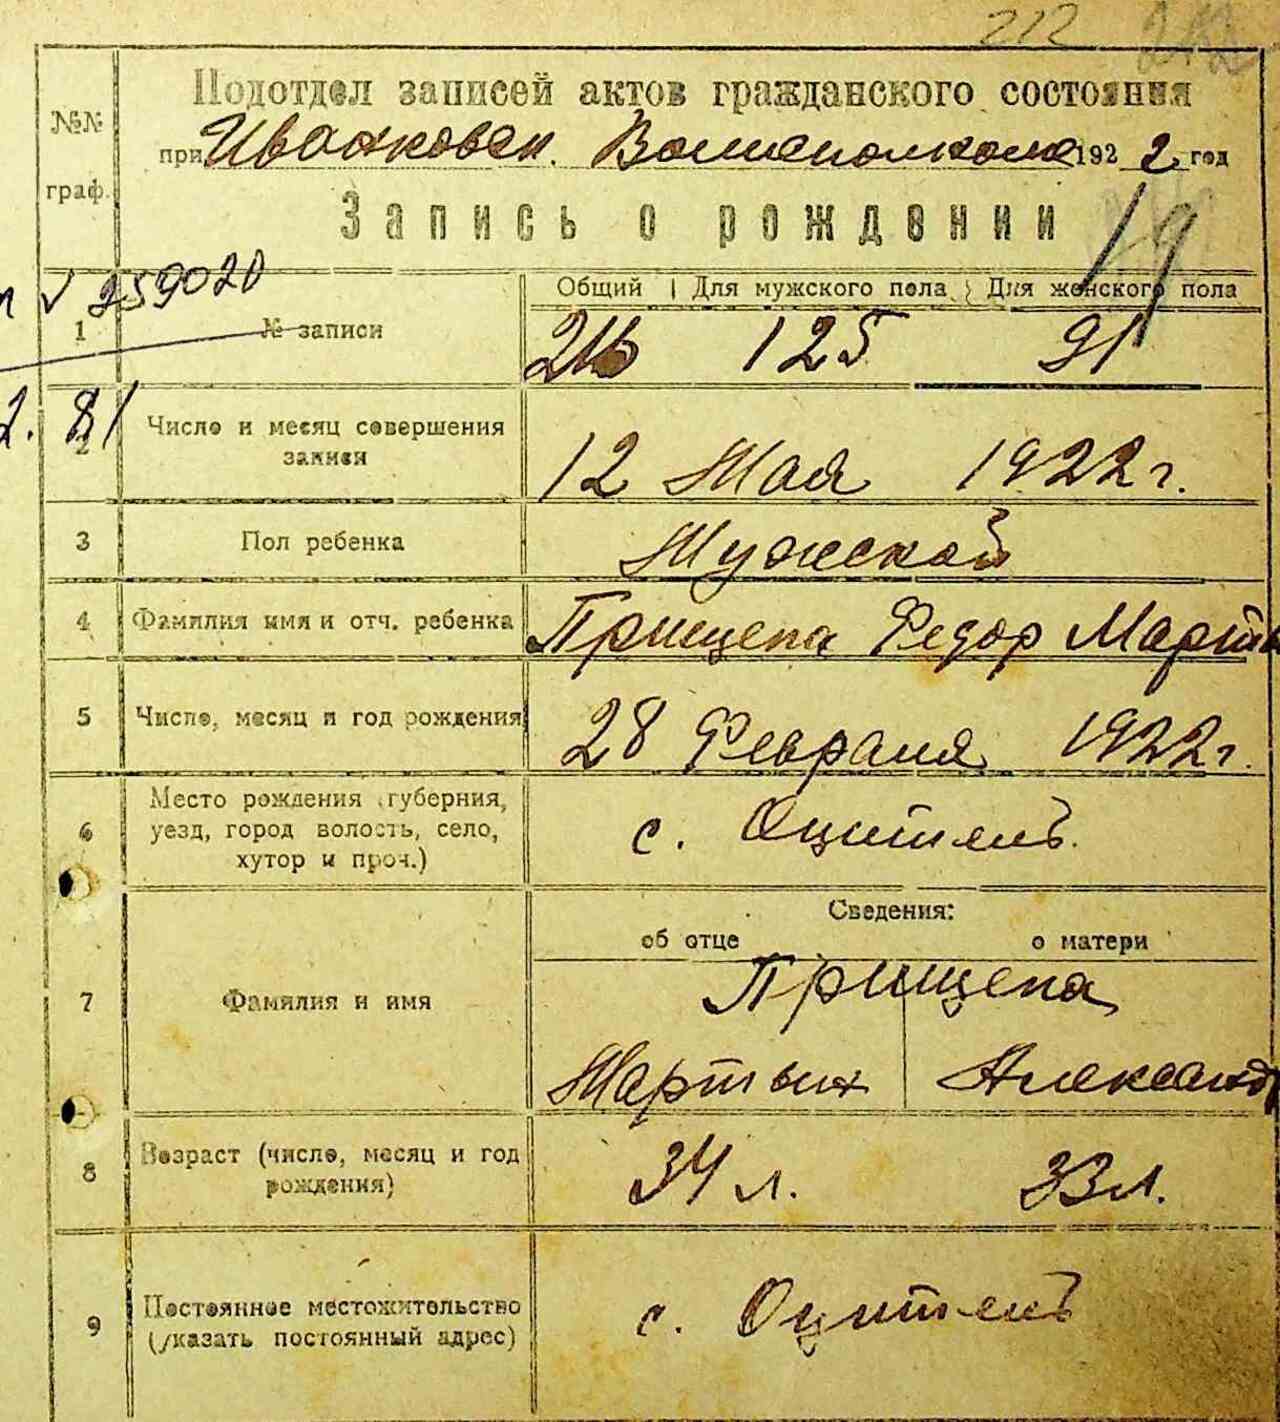 212 212
Подотдел записей актов гражданского состояния
№№ граф.
при Иванковск. Волисполкоме 1922 год
Запись о рождении
19
259020
Общий Для мужского пола Для женского пола
1 № записи 216 125 91
2. 81
2 Число и месяц совершения записи 12 Мая 1922 г.
3 Пол ребенка Мужской
4 Фамилия имя и отч. ребенка Прищепа Федор Марты
5 Число, месяц и год рождения 28 Февраля 1922 г.
6 Место рождения (губерния,
уезд, город волость, село, с. Оцитель.
хутор и проч.)
Сведения:
об отце о матери
7 Фамилия и имя Прищепа
Мартын Александр
8 Возраст (число, месяц и год рождения) 34 л. 33 л.
9 Постоянное местожительство
(указать постоянный адрес) с. Оцитель